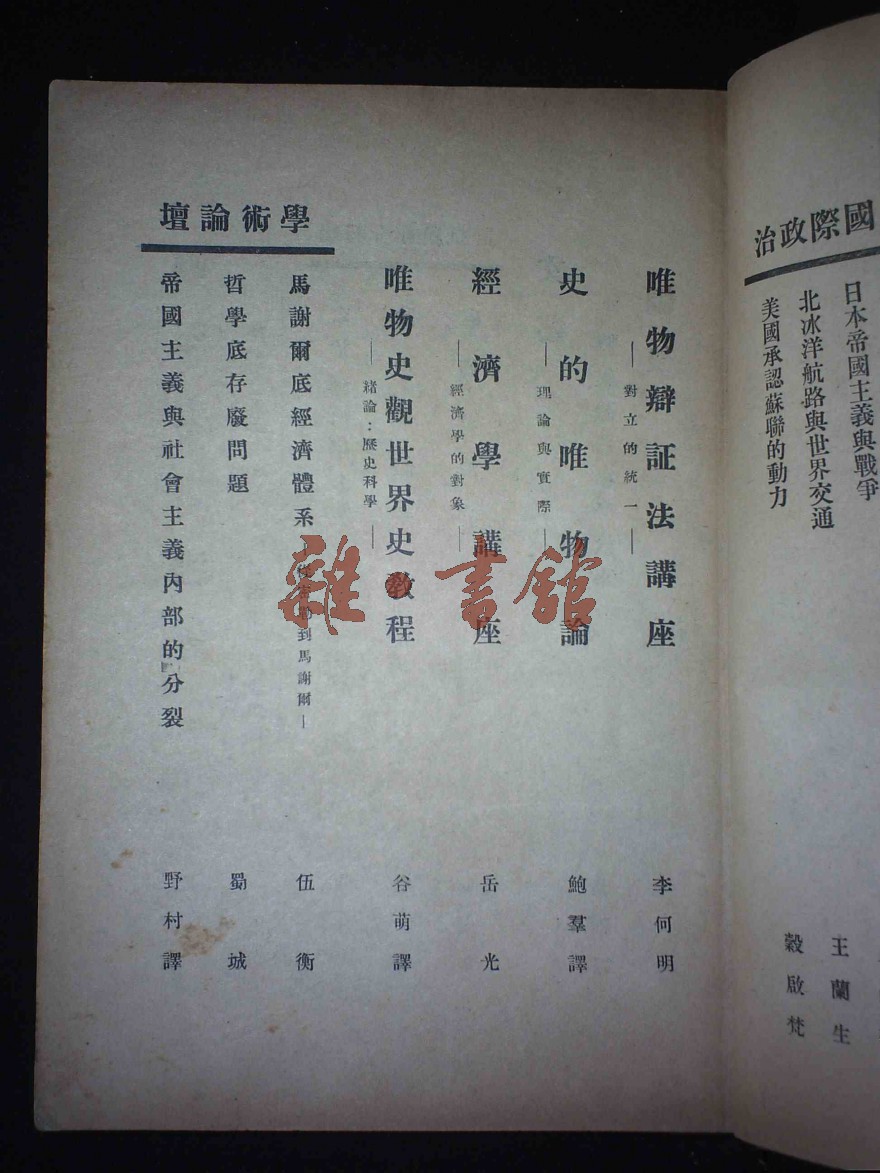 國際政治
日本帝國主義與戰爭
北冰洋航路與世界交通
王蘭生
美國承認蘇聯的動力
穀啟梵
唯物辯証法講座
—對立的統一—
李何明
史的唯物論
—理論與實際—
鮑羣譯
經濟學講座
—經濟學的對象—
岳光
唯物史觀世界史教程
—緒論：歷史科學—
谷萌譯
學術論壇
馬謝爾底經濟體系
到馬謝爾—
伍衡
哲學底存廢問題
蜀城
帝國主義與社會主義內部的分裂
野村譯
雜書館